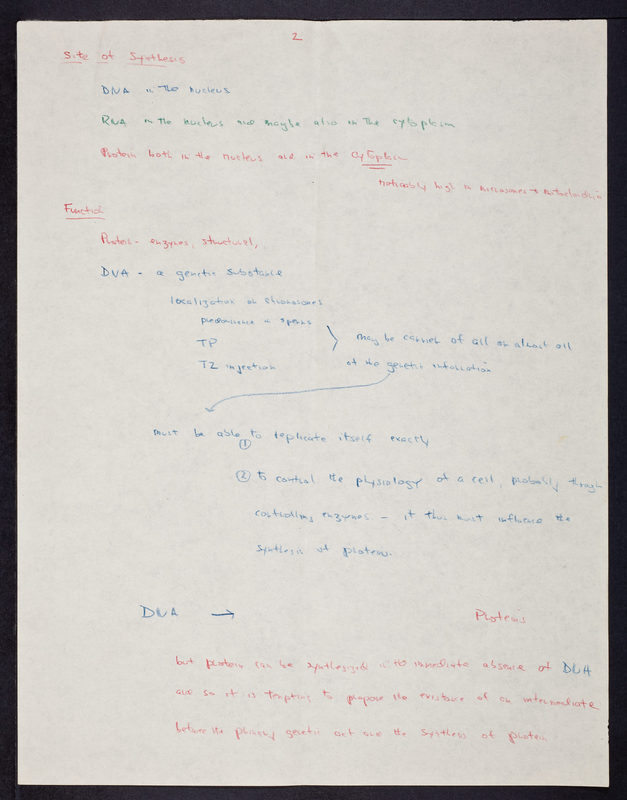 2
Site of Synthesis
DNA in the nucleus
RNA in the nucleus and maybe also in the cytoplasm
Protein both in the nucleus and in the cytoplasm
noticeably high in microsomes + mitochondria
Function
Protein - enzymes, structural,
DNA - a genetic substance
localization on chromosomes
predominence in sperms
TP
may be carrier of all or almost all
T2 injection
of the genetic information
must be able to replicate itself exactly
①
② to control the physiology of a cell, probably through
controlling enzymes - it thus must influence the
synthesis of proteins.
DNA → Proteins
but protein can be synthesized in the immediate absence of DNA
and so it is tempting to propose the existence of an intermediate
between the primary genetic act and the synthesis of protein